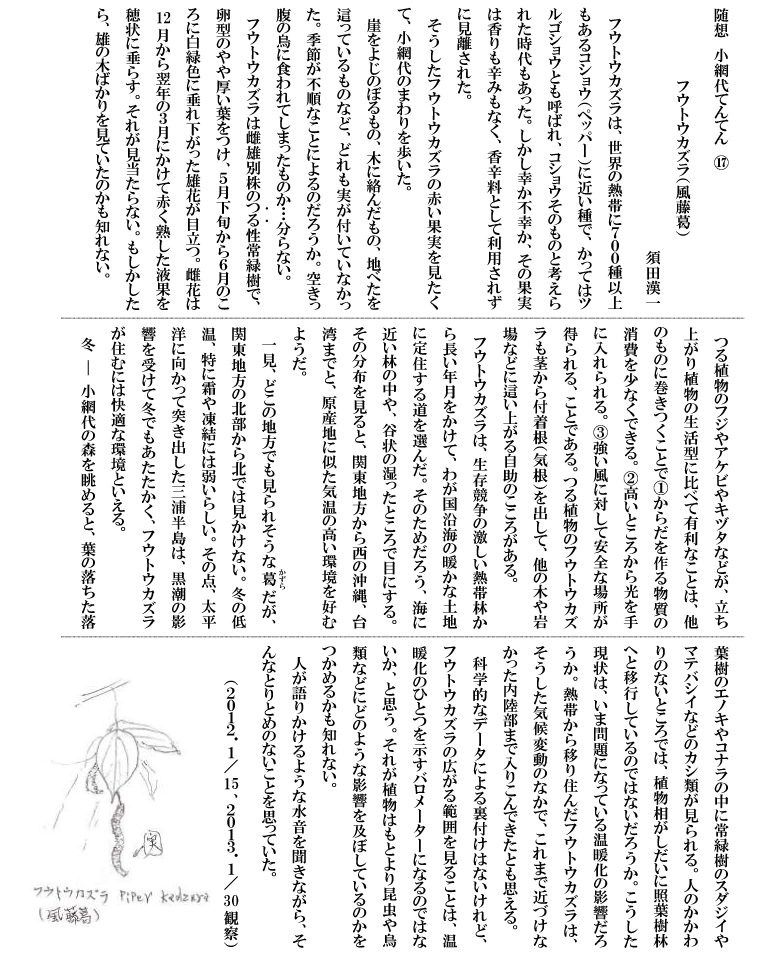 随想　小網代てんてん　⑰
フウトウカズラ（風藤葛）
須田漢一
フウトウカズラは、世界の熱帯に７００種以上
もあるコショウ（ペッパー）に近い種で、かつてはツ
ルゴショウとも呼ばれ、コショウそのものと考えら
れた時代もあった。しかし幸か不幸か、その果実
は香りも辛みもなく、香辛料として利用されず
に見離された。
そうしたフウトウカズラの赤い果実を見たく
て、小網代のまわりを歩いた。
崖をよじのぼるもの、木に絡んだもの、地べたを
這っているものなど、どれも実が付いていなかっ
た。季節が不順なことによるのだろうか。空きっ
腹の鳥に食われてしまったものか…分らない。
フウトウカズラは雌雄別株のつる性常緑樹で、
卵型のやや厚い葉をつけ、５月下旬から６月のこ
ろに白緑色に垂れ下がった雄花が目立つ。雌花は
１２月から翌年の３月にかけて赤く熟した液果を
穂状に垂らす。それが見当たらない。もしかした
ら、雄の木ばかりを見ていたのかも知れない。
つる植物のフジやアケビやキヅタなどが、立ち
上がり植物の生活型に比べて有利なことは、他
のものに巻きつくことで①からだを作る物質の
消費を少なくできる。②高いところから光を手
に入れられる。③強い風に対して安全な場所が
得られる、ことである。つる植物のフウトウカズ
ラも茎から付着根（気根）を出して、他の木や岩
場などに這い上がる自助のこころがある。
フウトウカズラは、生存競争の激しい熱帯林か
ら長い年月をかけて、わが国沿海の暖かな土地
に定住する道を選んだ。そのためだろう、海に
近い林の中や、谷状の湿ったところで目にする。
その分布を見ると、関東地方から西の沖縄、台
湾までと、原産地に似た気温の高い環境を好む
ようだ。
一見、どこの地方でも見られそうな葛（かずら）だが、
関東地方の北部から北では見かけない。冬の低
温、特に霜や凍結には弱いらしい。その点、太平
洋に向かって突き出した三浦半島は、黒潮の影
響を受けて冬でもあたたかく、フウトウカズラ
が住むには快適な環境といえる。
冬 ― 小網代の森を眺めると、葉の落ちた落
葉樹のエノキやコナラの中に常緑樹のスダジイや
マテバシイなどのカシ類が見られる。人のかかわ
りのないところでは、植物相がしだいに照葉樹林
へと移行しているのではないだろうか。こうした
現状は、いま問題になっている温暖化の影響だろ
うか。熱帯から移り住んだフウトウカズラは、
そうした気候変動のなかで、これまで近づけな
かった内陸部まで入りこんできたとも思える。
科学的なデータによる裏付けはないけれど、
フウトウカズラの広がる範囲を見ることは、温
暖化のひとつを示すバロメーターになるのではな
いか、と思う。それが植物はもとより昆虫や鳥
類などにどのような影響を及ぼしているのかを
つかめるかも知れない。
人が語りかけるような水音を聞きながら、そ
んなとりとめのないことを思っていた。
（２０１２．１／１５、２０１３．１／３０観察）
実
フウトウカズラ Piper kadzura
（風藤葛）